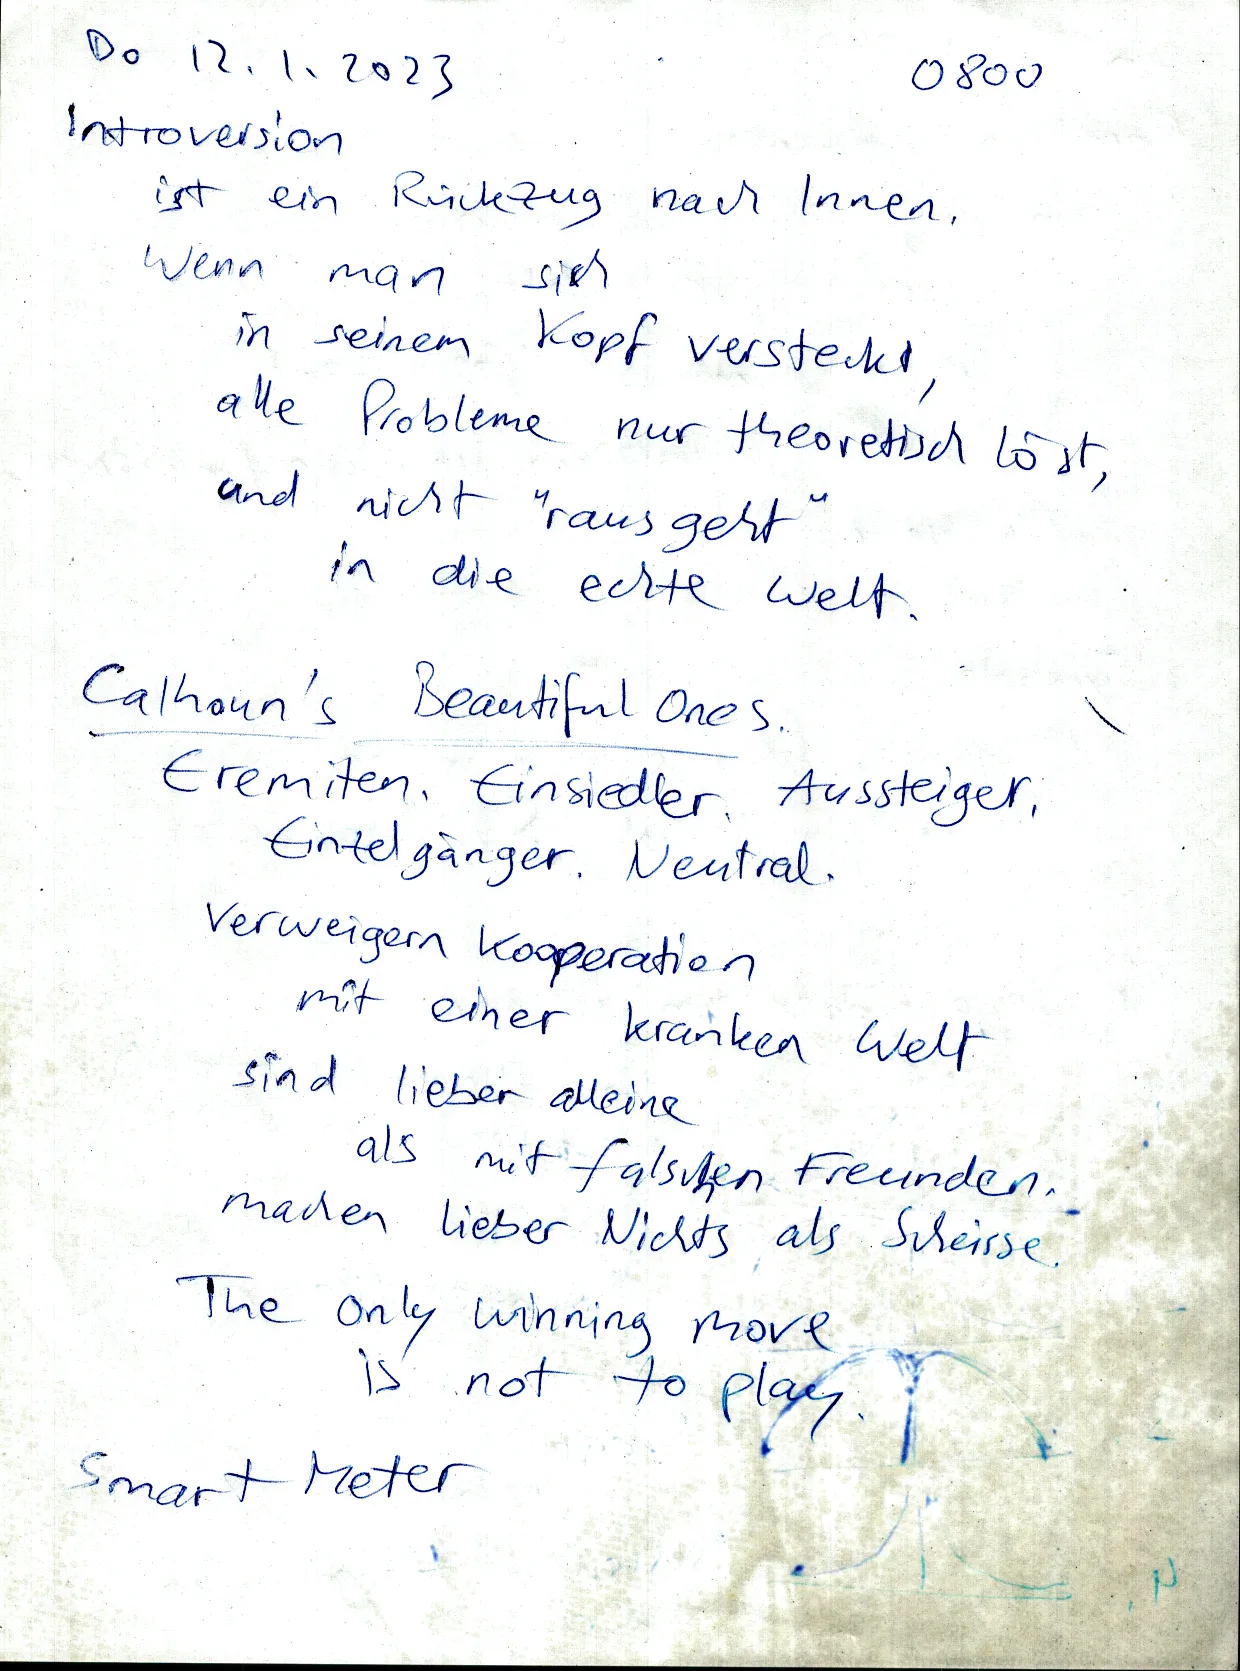 Do 12.1.2023 0800
Introversion
ist ein Rückzug nach Innen.
Wenn man sich
in seinem Kopf versteckt,
alle Probleme nur theoretisch löst,
und nicht "rausgeht"
in die echte Welt.
Calhoun's Beautiful Ones.
Eremiten. Einsiedler. Aussteiger.
Einzelgänger. Neutral.
Verweigern Kooperation
mit einer kranken Welt
sind lieber alleine
als mit falschen Freunden.
machen lieber Nichts als Scheisse.
The only winning move
is not to play.
Smart Meter